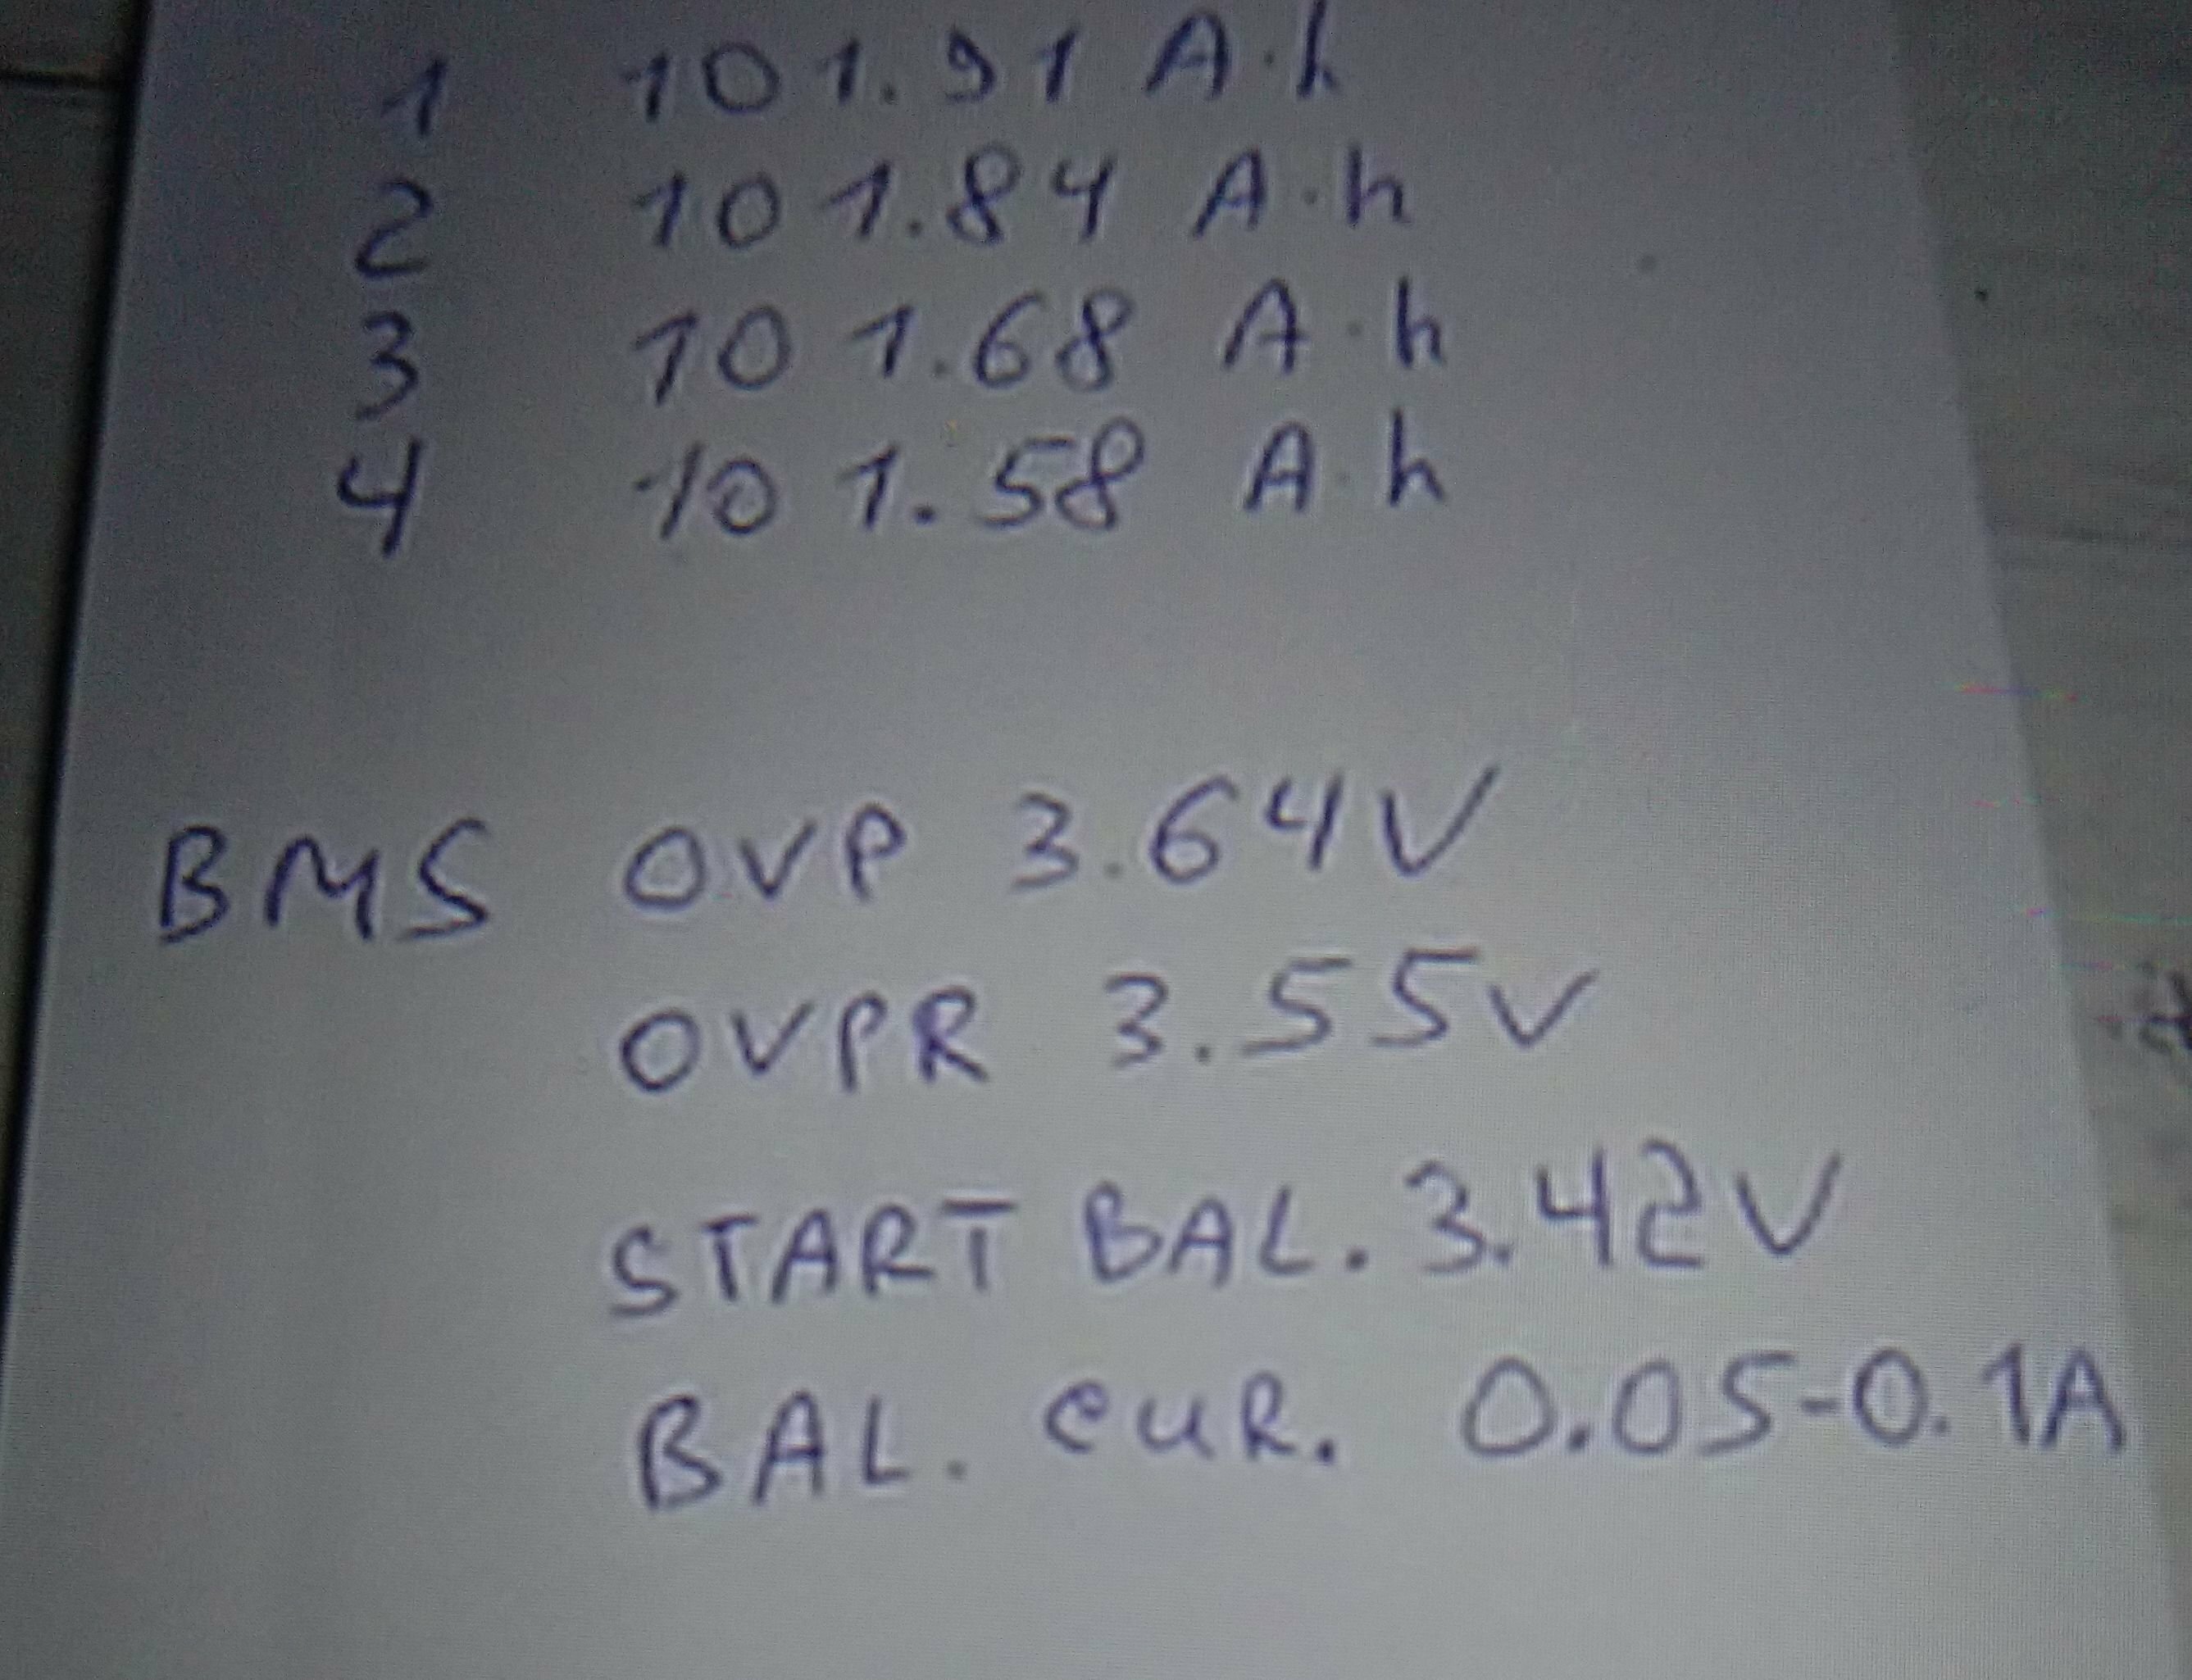 1 101.91 A·h
2 101.84 A·h
3 101.68 A·h
4 101.58 A·h
BMS OVP 3.64V
OVPR 3.55V
START BAL. 3.42V
BAL. CUR. 0.05-0.1A